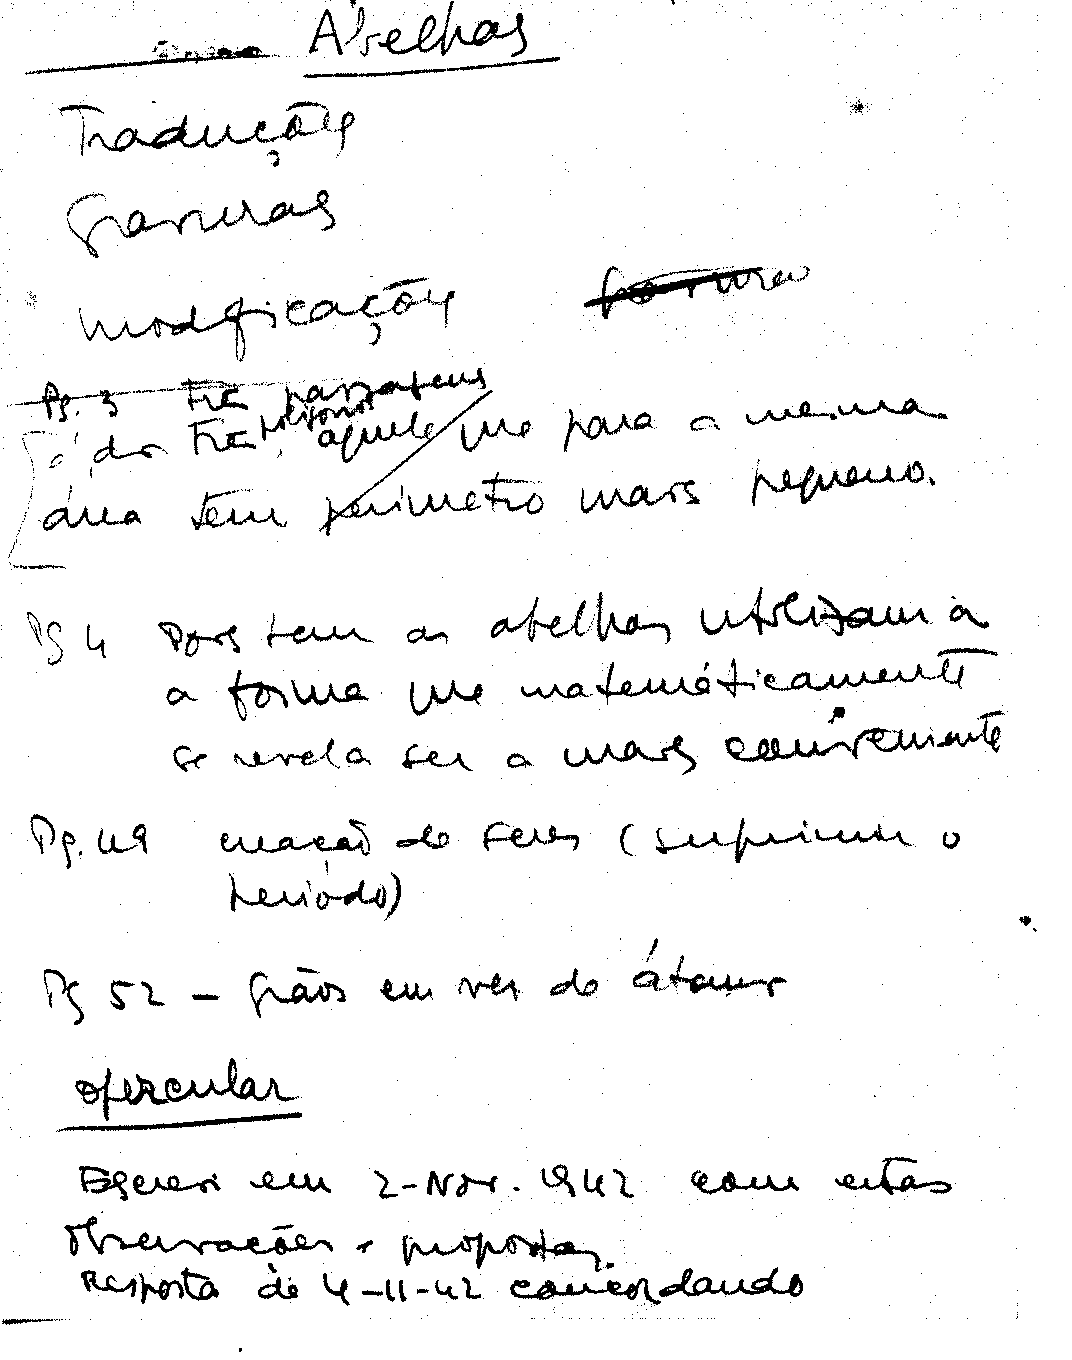 Abelhas
Traduções
Gravuras
modificações
Pg. 3 três passatens
é dos três polígonos, aquele que para a mesma
área tem perímetro mais pequeno.
Pg 4 Pois bem as abelhas utilizam a
a forma que matemáticamente
se revela ser a mais conveniente
Pg. 49 creação de seres (suprimir o
período)
Pg 52 - Grãos em vez de átomos
opercular
Escrevi em 2-Nov. 1942 com estas
observações e propostas.
Resposta de 4-11-42 concordando